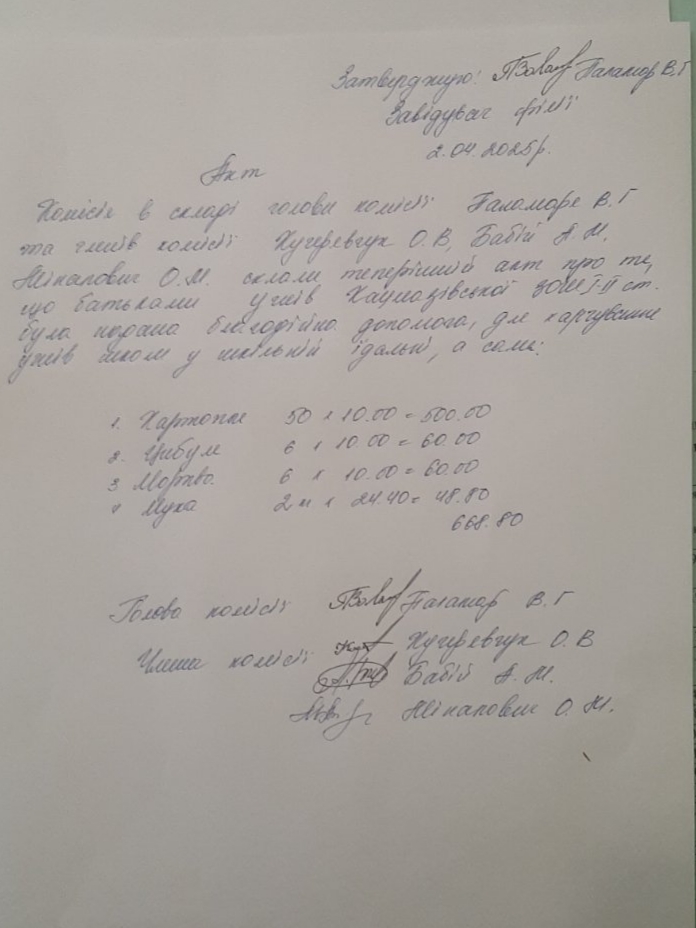 Затверджую: Паламар В.Г
Завідувач філії
2.04.2025р.
Акт
Комісія в складі голови комісії Паламаре В.Г
та членів комісії Кучеревчук О.В, Бабій А.М.
Ніпапович О.М. склали теперішній акт про те,
що батьками учнів ЗОШ I-II ст.
була надана благодійна допомога, для харчування
учнів школи у шкільній їдальні, а саме:
1. Картопля 50 х 10.00 = 500.00
2. Цибуля 6 х 10.00 = 60.00
3 Морква 6 х 10.00 = 60.00
4 Мука 2 х 24.40 = 48.80
668.80
Голова комісії Паламар В.Г
Члени комісії Кучеревчук О.В
Бабій А.М.
Ніпапович О.М.